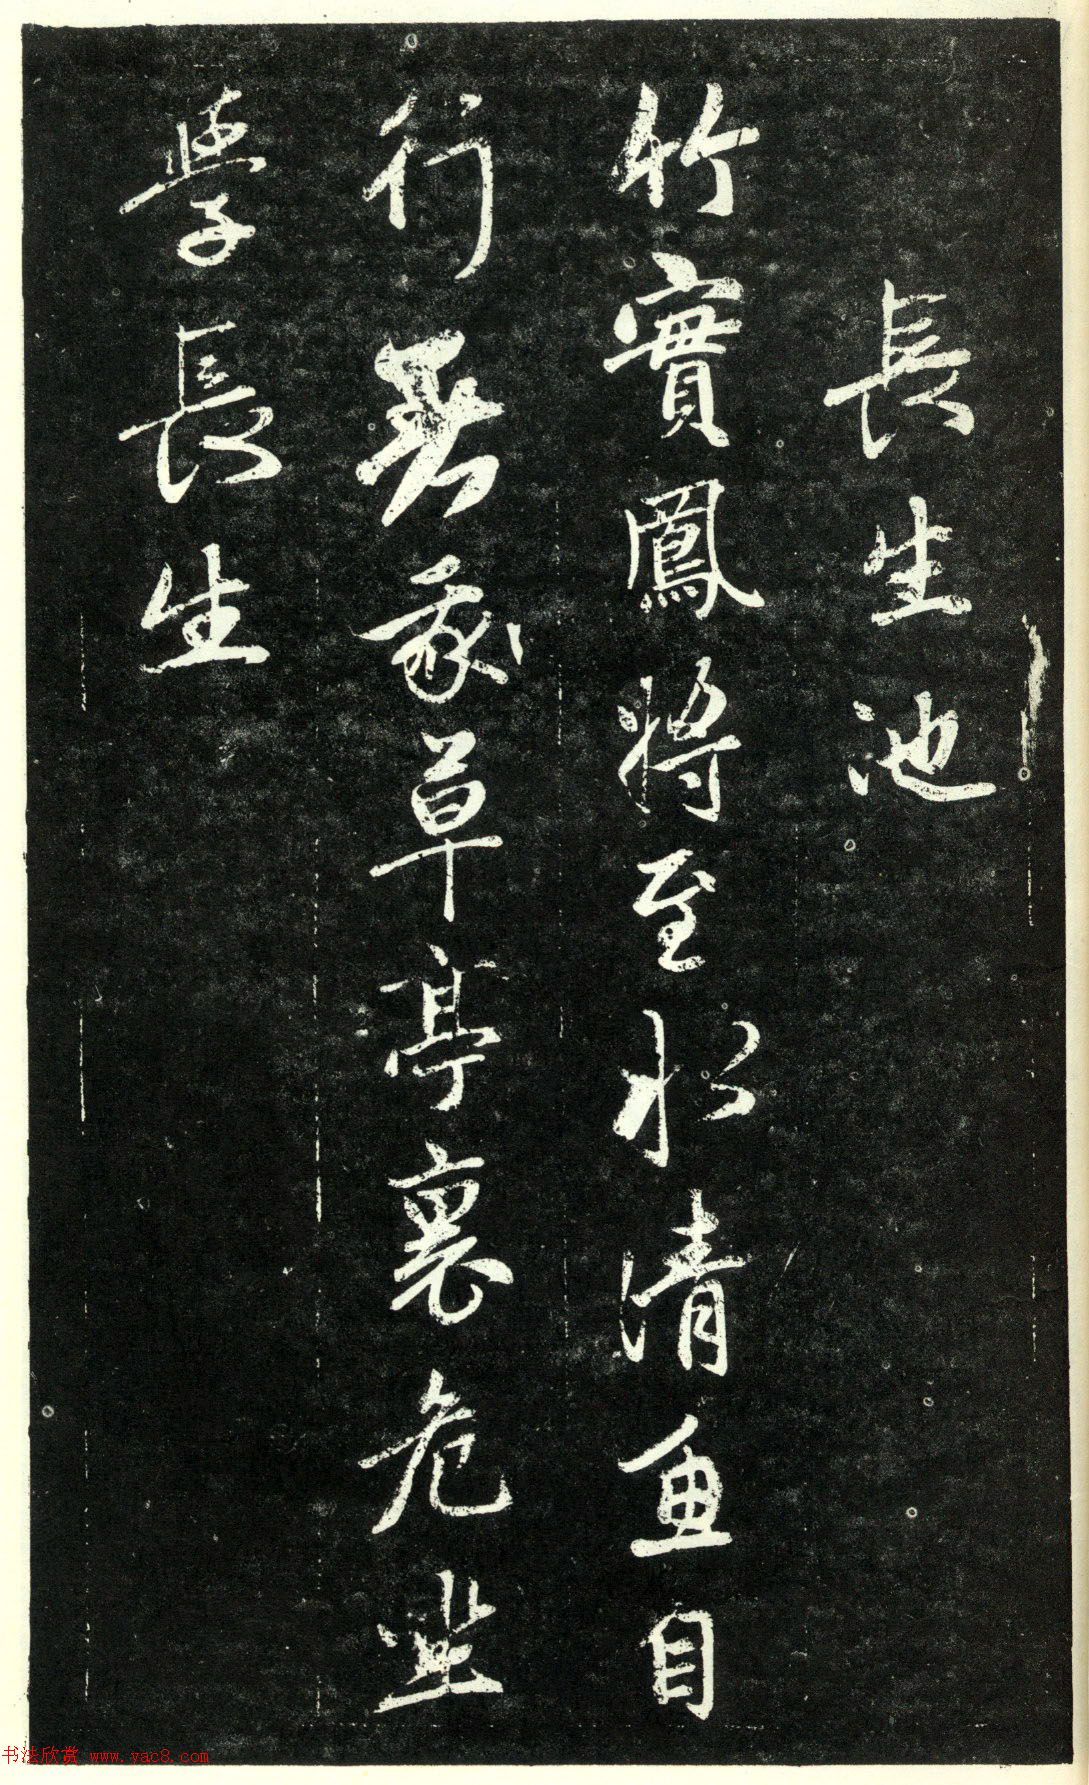 長生池
竹實鳳將至水清魚自
行著我草亭裏危坐
學長生
书法欣赏 www.yac8.com